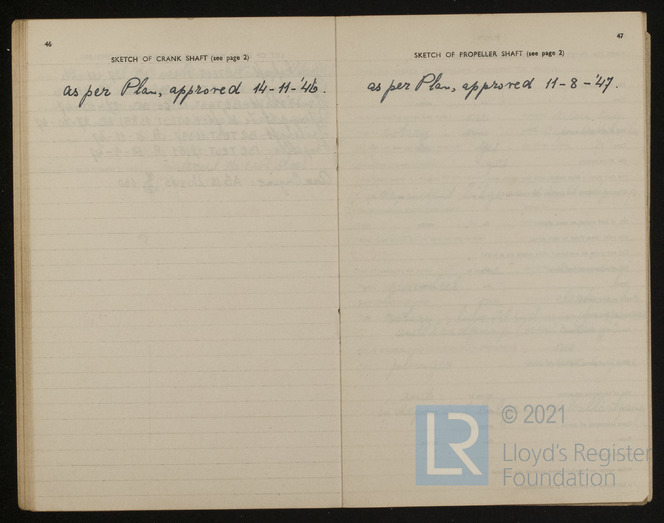 46
SKETCH OF CRANK SHAFT (see page 2)
as per Plan, approved 14-11-'46.
47
SKETCH OF PROPELLER SHAFT (see page 2)
as per Plan, approved 11-8-'47.
LR
© 2021
Lloyd's Register
Foundation